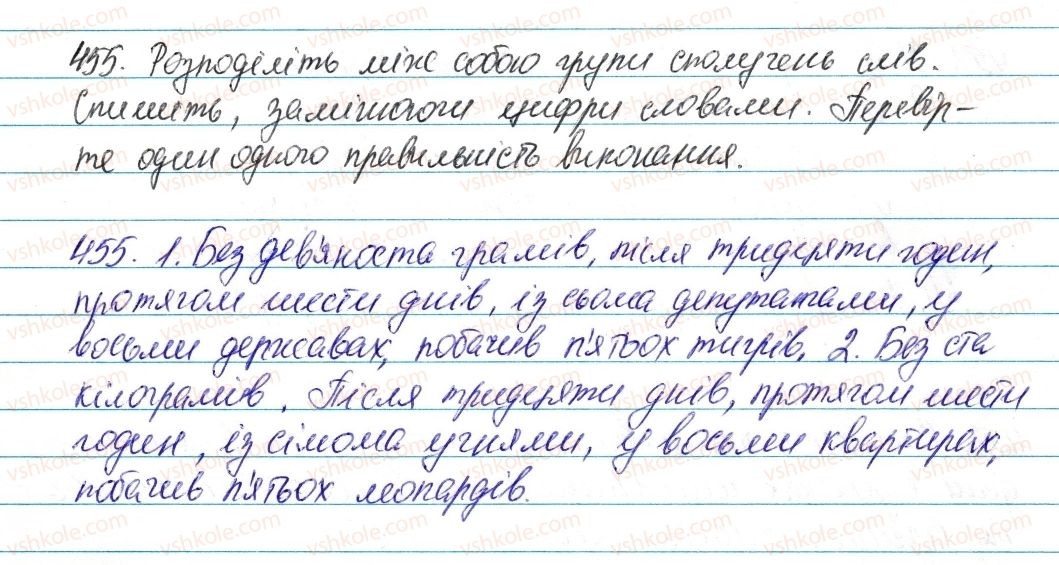 455. Розподіліть між собою групи сполучень слів.
Спишіть, замінюючи цифри словами. Перевір-
те один одного правильність виконання.
455. 1. Без дев'яноста грамів, після тридцяти годин,
протягом шести днів, із сьома депутатами, у
восьми державах, побачив п'ятьох тигрів. 2. Без ста
кілограмів. Після тридцяти днів, протягом шести
годин, із сімома учнями, у восьми квартирах,
побачив п'ятьох леопардів.